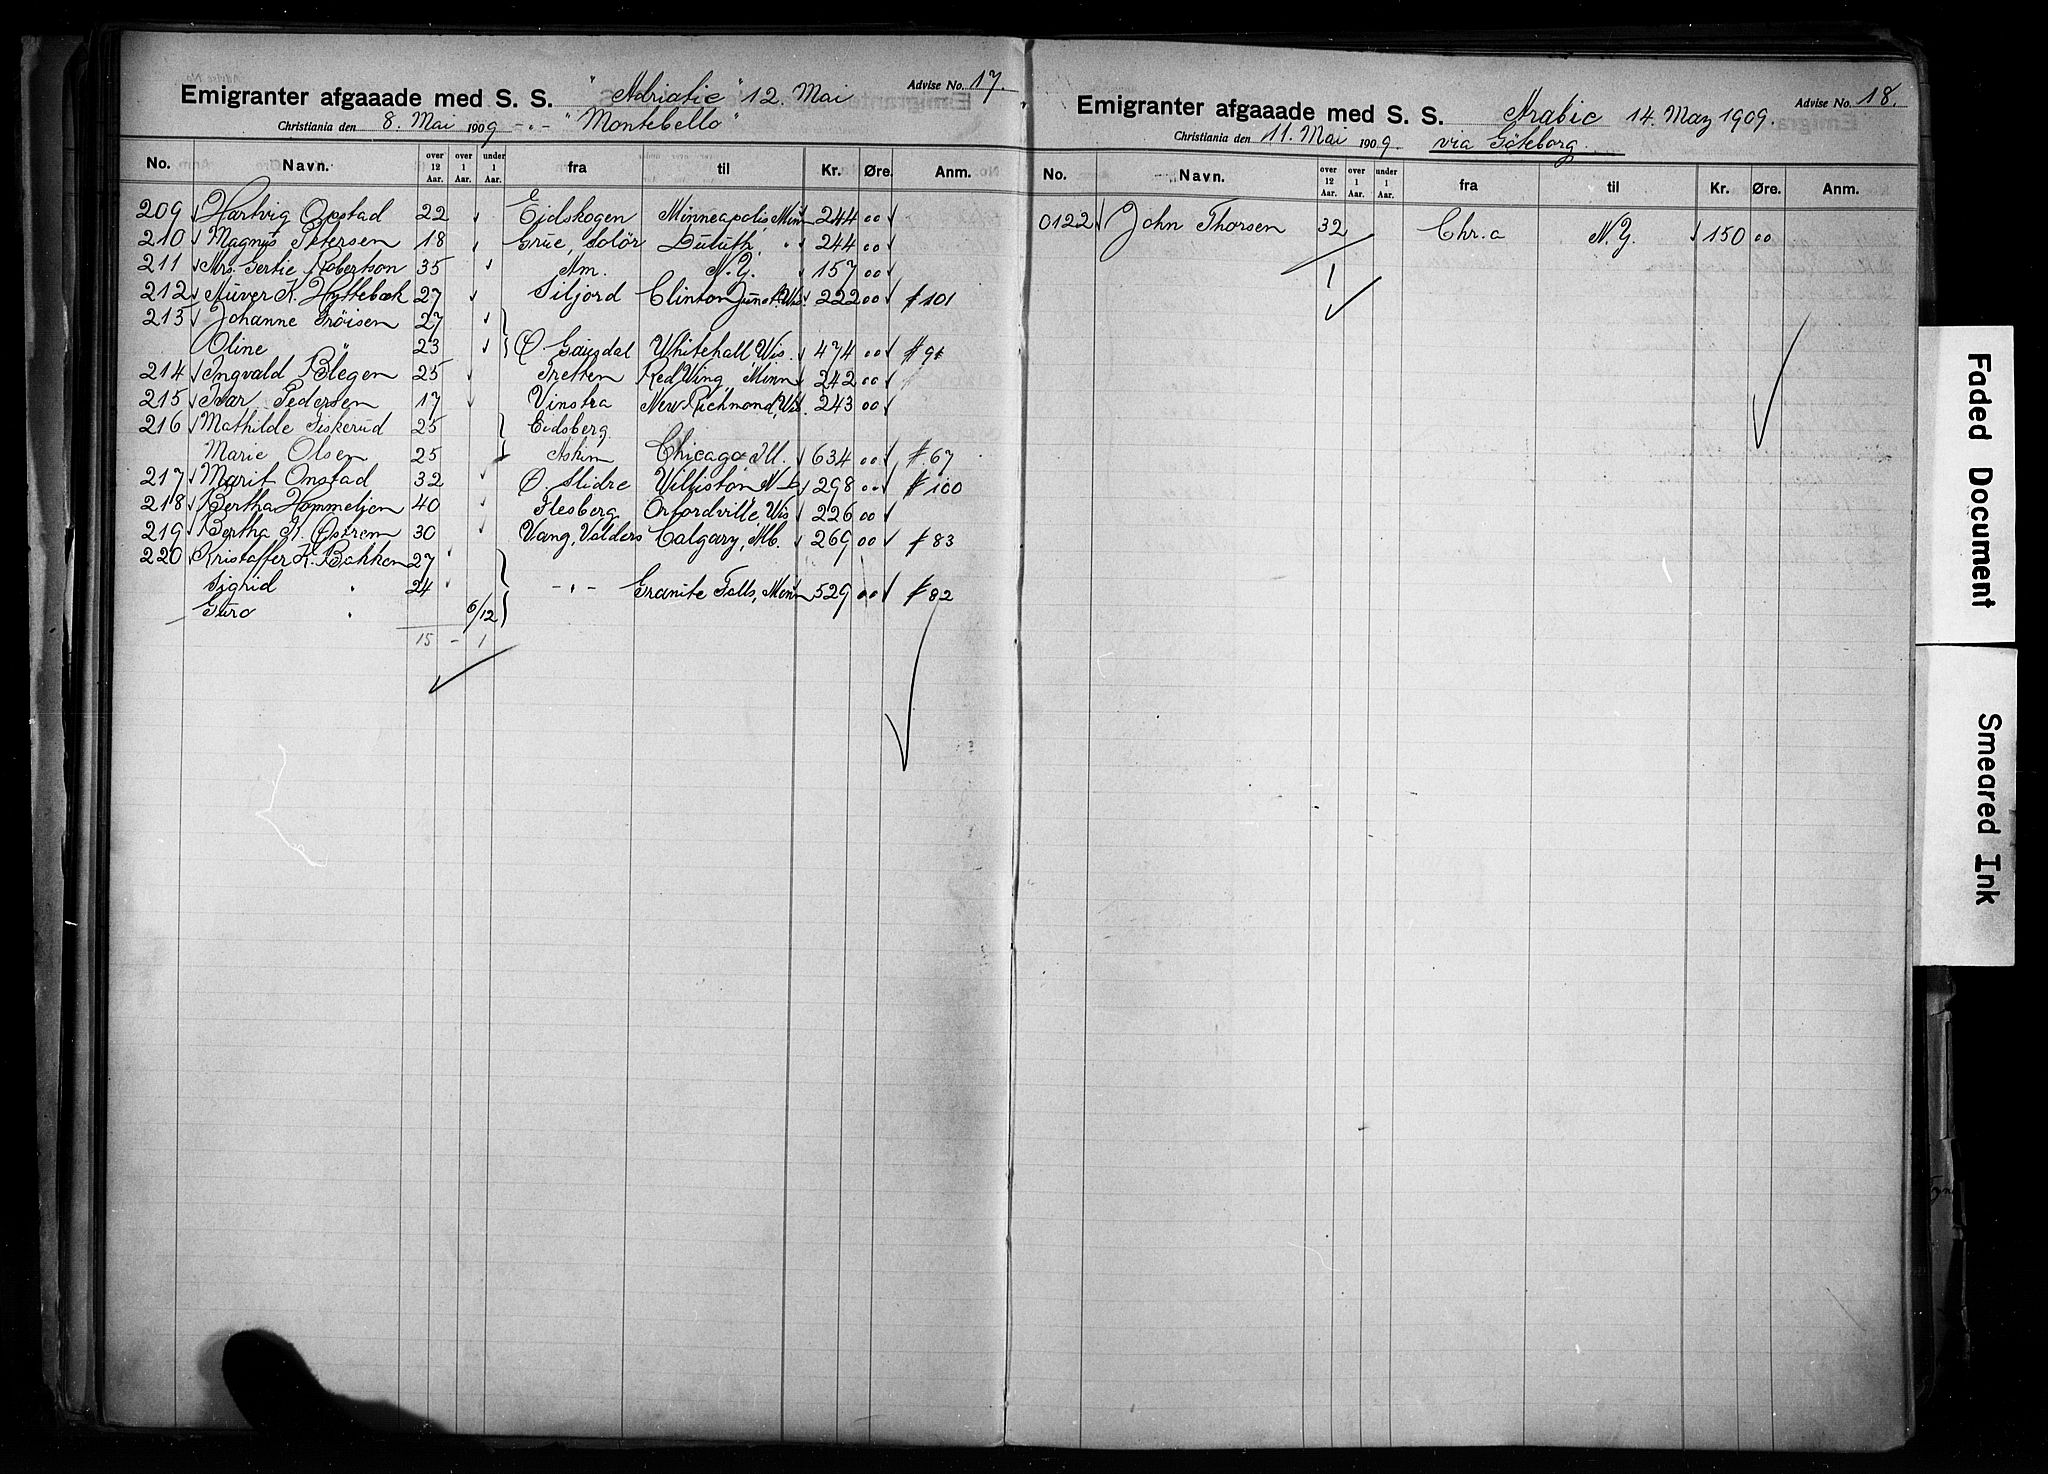 Advise No. 17.
Emigranter afgaaade med S. S. "Adriatic" 12. Mai
Christiania den 8. Mai 1909 -"- "Montebello"
No. Navn. over 12 Aar. over 1 Aar. under 1 Aar. fra til Kr. Øre. Anm.
209 Hartvig Opstad 22 Eidskogen Minneapolis, Minn 244 00
210 Magnus Petersen 18 Grue, Solör Duluth, " 244 00
211 Mrs. Gertie Robertson 35 Am. N.Y. 157 00
212 K. Hyttebæk 27 Siljord Clinton Junct. Wis. 222 00 # 101
213 Johanne Tröisen 27
Oline 23 Ø. Gausdal Whitehall Wis. 474 00 # 91
214 Ingvald Blegen 25 Tretten Red Wing, Minn 242 00
215 Ivar Pedersen 17 Vinstra New Richmond, Wis. 243 00
216 Mathilde Fiskerud 25 Eidsberg
Marie Olsen 25 Askim Chicago Ill. 634 00 # 67
217 Marit Onstad 32 Ø. Slidre Williston N.D. 298 00 # 100
218 Bertha Hammeljen 40 Flesberg Orfordville Wis 226 00
219 Bertha K. Östrem 30 Vang, Valders Calgary, Alb. 269 00 # 83
220 Kristaffer K. Bakken 27
Sigrid " 24 -"- Granite Falls, Minn 529 00 # 82
Guro " 6/12
15 - 1
Advise No. 18.
Emigranter afgaaade med S. S. Arabic 14. May 1909.
Christiania den 11. Mai 1909 via Göteborg.
No. Navn. over 12 Aar. over 1 Aar. under 1 Aar. fra til Kr. Øre. Anm.
0122 John Thorsen 32 Chr.a N.Y. 150 00
1
Faded Document
Smeared Ink